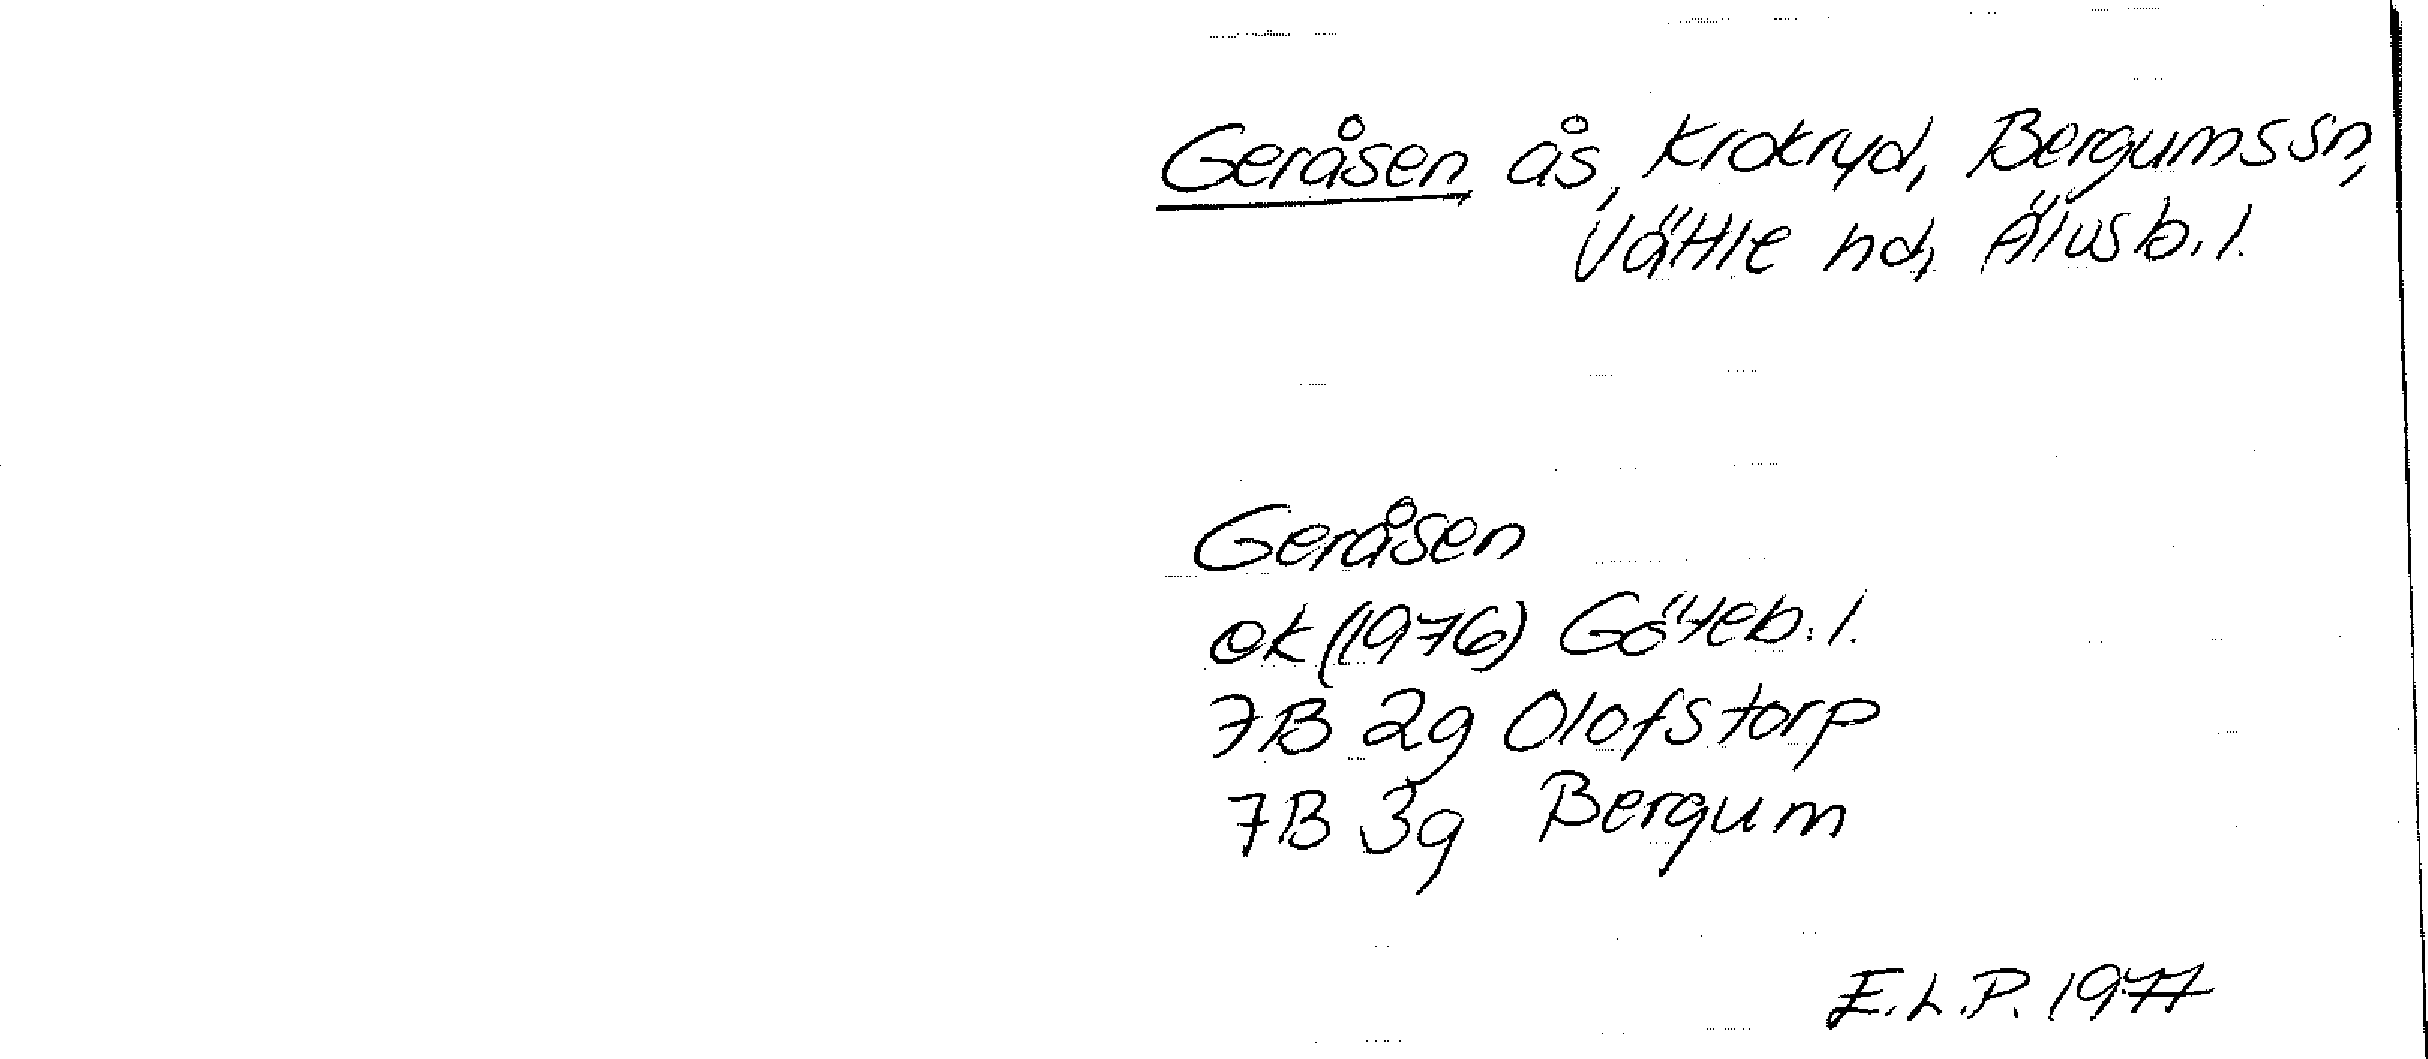 Geråsen ås, Krokryd, Bergums sn,
Vättle hd, Älvsb. l.
Geråsen
ek (1976) Göteb. l.
7B 2g Olofstorp
7B 3g Bergum
E.L.P. 1977